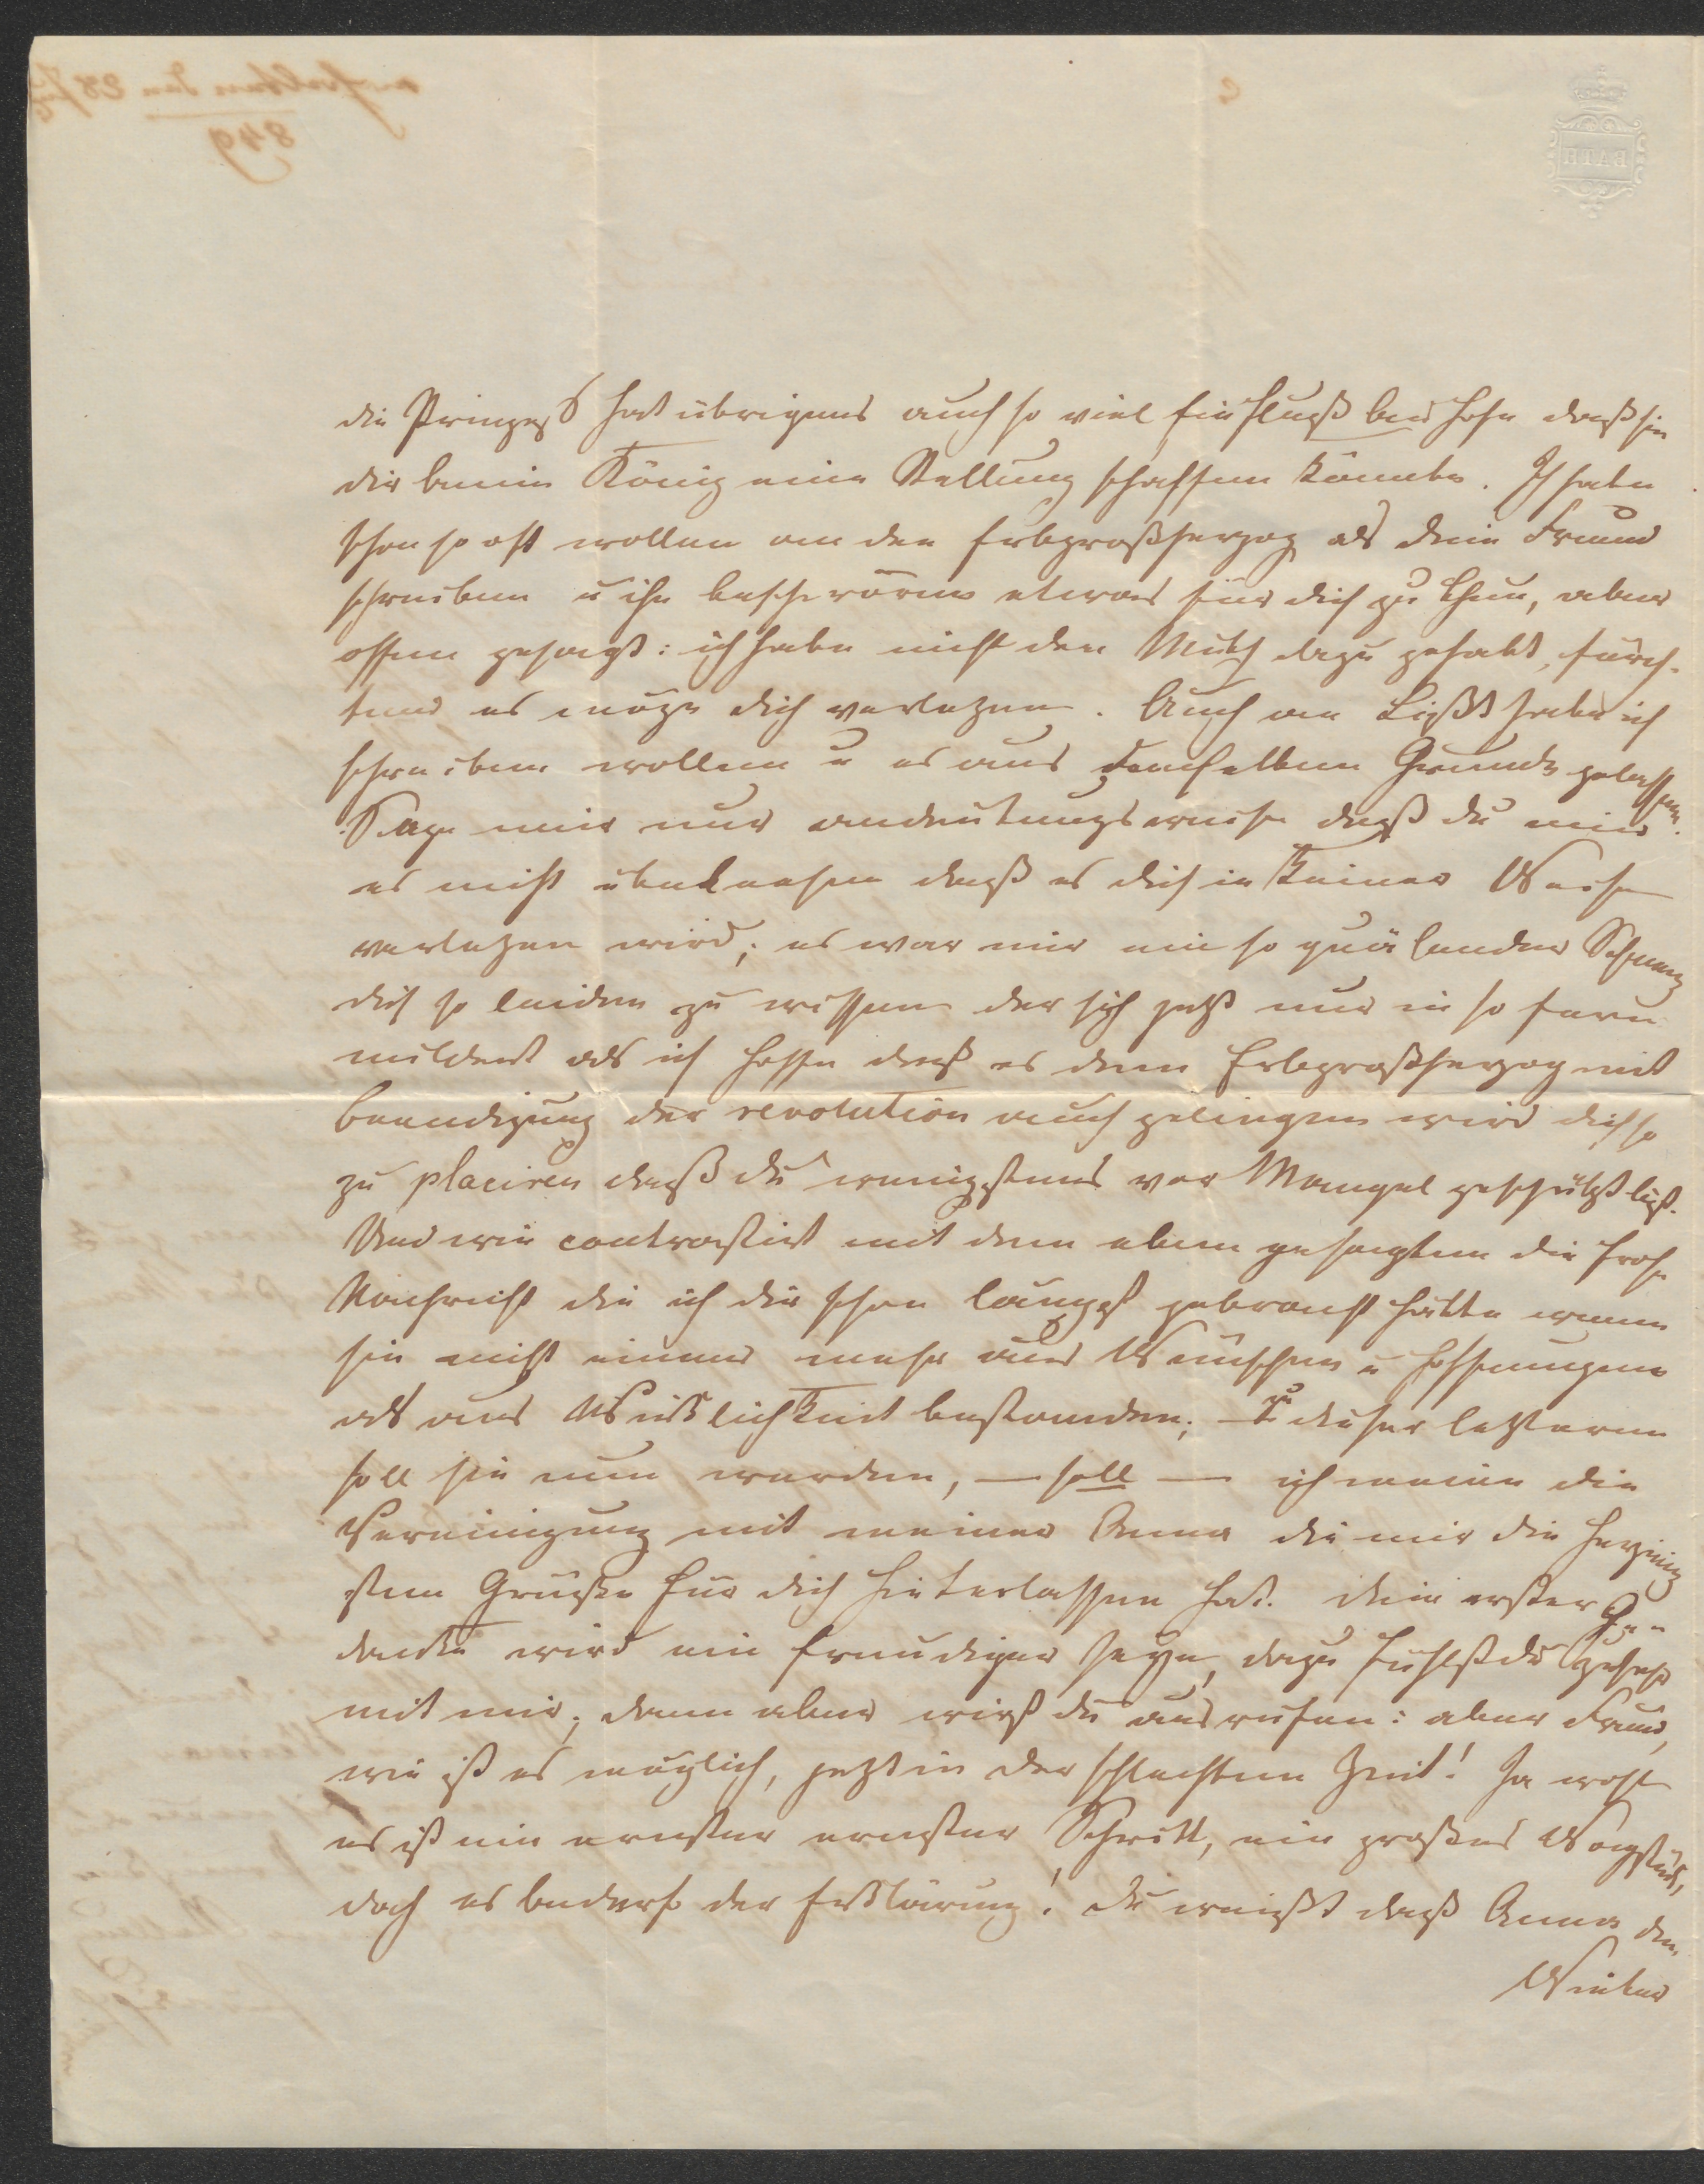 die Prinzess hat übrigens auch so viel Einfluß bei Hofe daß sie
dir beim König eine Stellung schaffen könnte. Ich habe
schon so oft wollen an den Erbgroßherzog als dein Freund
schreiben u ihn beschwören etwas für dich zu thun, aber
offen gesagt: ich habe nicht den Muth dazu gehabt, fürch-
tend es möge dich verlezen. Auch an Lißt habe ich
schreiben wollen u es aus demselben Grunde gelassen.
Sage mir nur andeutungsweise daß du mir
es nicht übel nehmen daß es dich in keiner Weise
verlezen wird; es war mir ein so quälender Schmerz
dich so leiden zu wissen der sich jezt nur in so fern
mildert als ich hoffe daß es dem Erbgroßherzog mit
Beendigung der revolution auch gelingen wird dich so
zu placiren daß du wenigstens vor Mangel geschützt bist.
Und wie contrastirt mit dem eben gesagten die frohe
Nachricht die ich dir schon längst gebracht hätte wenn
sie nicht immer mehr aus Wünschen u Hoffnungen
als aus Wirklichkeit bestanden; – zu dieser lezteren
soll sie nun werden, — soll — ich meine die
Vereinigung mit meiner Anna die mir die herzinnig
sten Grüße für dich hinterlassen hat. Dein erster Ge-
danke wird ein freudiger seyn, dazu fühlst du zu sehr
mit mir; dann aber wirst du ausrufen: aber Freund,
wie ist es möglich, jezt in der schlechten Zeit! Ja wohl
es ist ein ernster ernster Schritt, ein großes Wagstück,
doch es bedarf der Erklärung! Du weißt daß Anna den
Winter
BATH
849